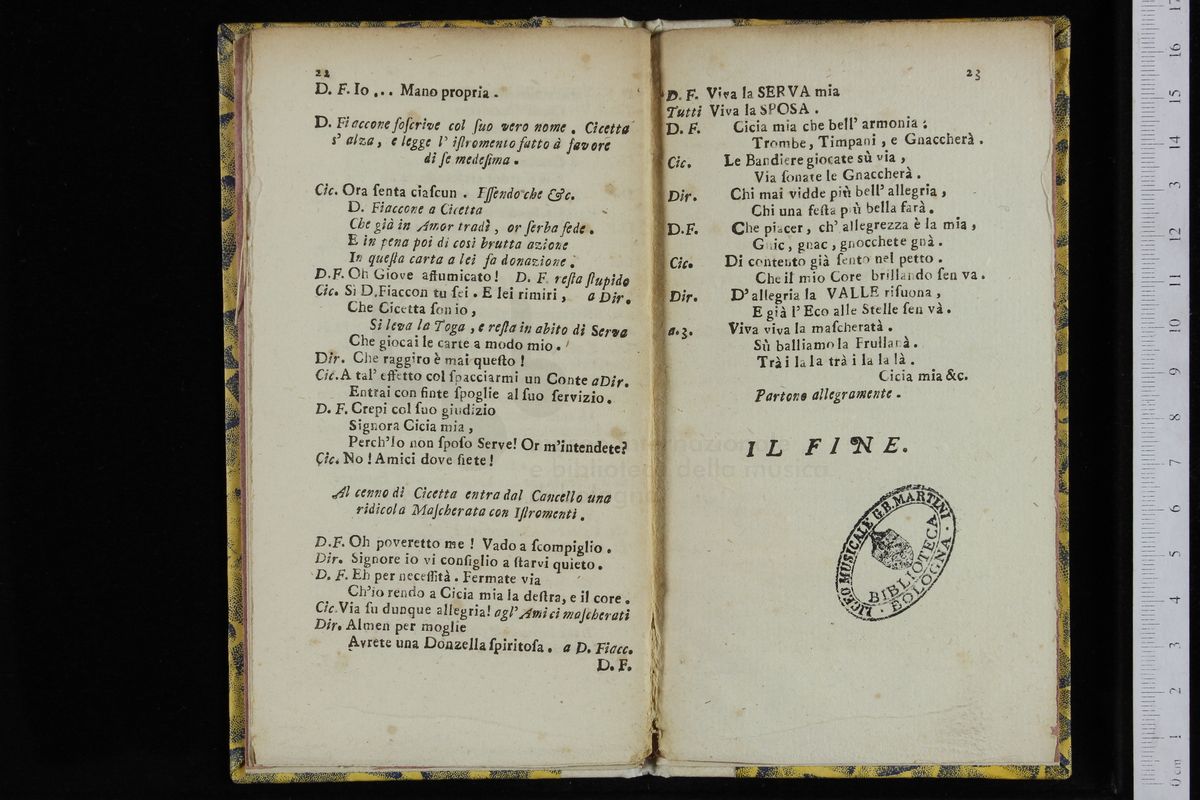 22
D. F. Io ... Mano propria .
D. Fiaccone ſoſcrive col ſuo vero nome . Cicetta
s' alza , e legge l' iſtromento fatto à favore
di ſe medeſima .
Cic. Ora ſenta ciaſcun . Eſſendo che &c.
D. Fiaccone a Cicetta
Che già in Amor tradì , or ſerba fede .
E in pena poi di così brutta azione
In queſta carta a lei fa donazione .
D.F. Oh Giove affumicato ! D. F. reſta ſtupido
Cic. Sì D.Fiaccon tu ſei . E lei rimiri , a Dir.
Che Cicetta ſon io ,
Si leva la Toga , e reſta in abito di Serva
Che giocai le carte a modo mio .
Dir. Che raggiro è mai queſto !
Cic. A tal' effetto col ſpacciarmi un Conte a Dir.
Entrai con finte ſpoglie al ſuo ſervizio .
D. F. Crepi col ſuo giudizio
Signora Cicia mia ,
Perch'Io non ſpoſo Serve! Or m'intendete?
Cic. No ! Amici dove ſiete !
Al cenno di Cicetta entra dal Cancello una
ridicola Maſcherata con Iſtromenti .
D.F. Oh poveretto me ! Vado a ſcompiglio .
Dir. Signore io vi conſiglio a ſtarvi quieto .
D. F. Eh per neceſſità . Fermate via
Ch'io rendo a Cicia mia la deſtra, e il core .
Cic. Via ſu dunque allegria! agl' Amici maſcherati
Dir. Almen per moglie
Avrete una Donzella ſpiritoſa . a D. Fiacc.
D. F.
23
D. F. Viva la SERVA mia
Tutti Viva la SPOSA .
D. F. Cicia mia che bell' armonia :
Trombe, Timpani , e Gnaccherà .
Cic. Le Bandiere giocate sù via ,
Via ſonate le Gnaccherà .
Dir. Chi mai vidde più bell' allegria ,
Chi una feſta più bella farà .
D.F. Che piacer , ch' allegrezza è la mia ,
Gnic , gnac , gnocchete gnà .
Cic. Di contento già ſento nel petto .
Che il mio Core brillando ſen va .
Dir. D' allegria la VALLE riſuona ,
E già l' Eco alle Stelle ſen và .
a.3. Viva viva la maſcheratà .
Sù balliamo la Frullanà .
Trà i la la trà i la la là .
Cicia mia &c.
Partono allegramente .
IL FINE.
LICEO MUSICALE G.B. MARTINI
BIBLIOTECA
· BOLOGNA ·
internazionale
e biblioteca della musica